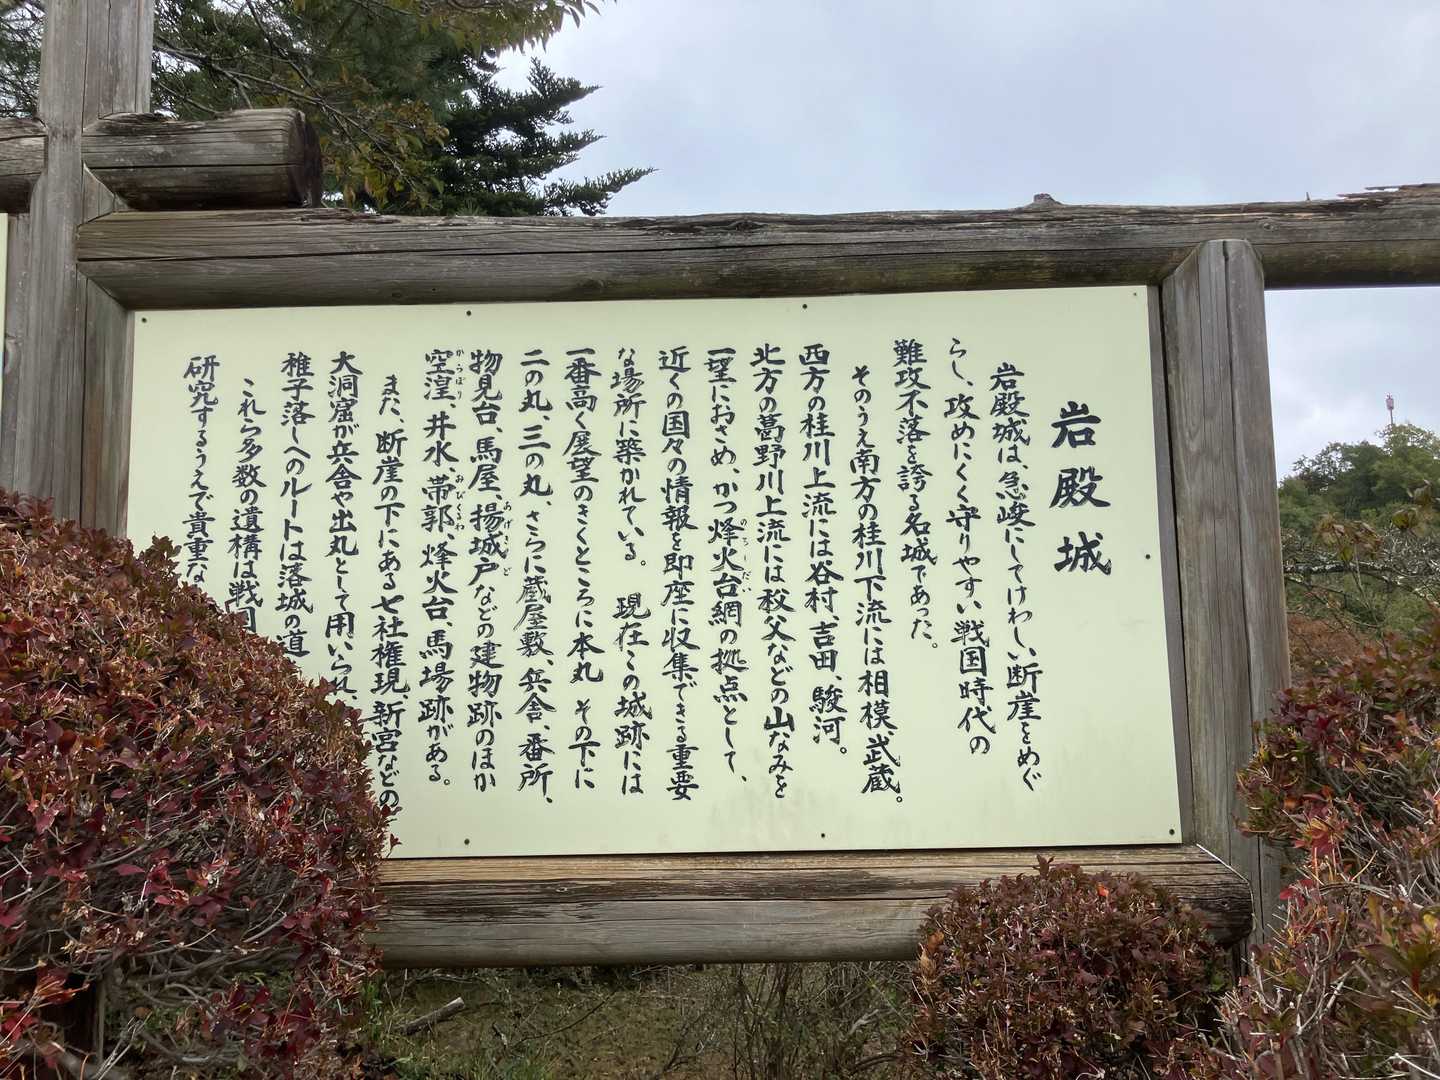 岩殿城
岩殿城は、急峻にしてけわしい断崖をめぐ
らし、攻めにくく守りやすい戦国時代の
難攻不落を誇る名城であった。
そのうえ南方の桂川下流には相模、武蔵。
西方の桂川上流には谷村、吉田、駿河。
北方の葛野川上流には秩父などの山なみを
一望におさめ、かつ烽火台網の拠点として、
のろしだい
近くの国々の情報を即座に収集できる重要
な場所に築かれている。 現在この城跡には
一番高く展望のきくところに本丸 その下に
二の丸、三の丸、さらに蔵屋敷、兵舎、番所、
物見台、馬屋、揚城戸などの建物跡のほか
あげきど
空湟、井水、帯郭、烽火台、馬場跡がある。
からぼり
おびくるわ
また、断崖の下にある七社権現、新宮などの
大洞窟が兵舎や出丸として用いられ、
稚子落しへのルートは落城の道
これら多数の遺構は戦国
研究するうえで貴重な